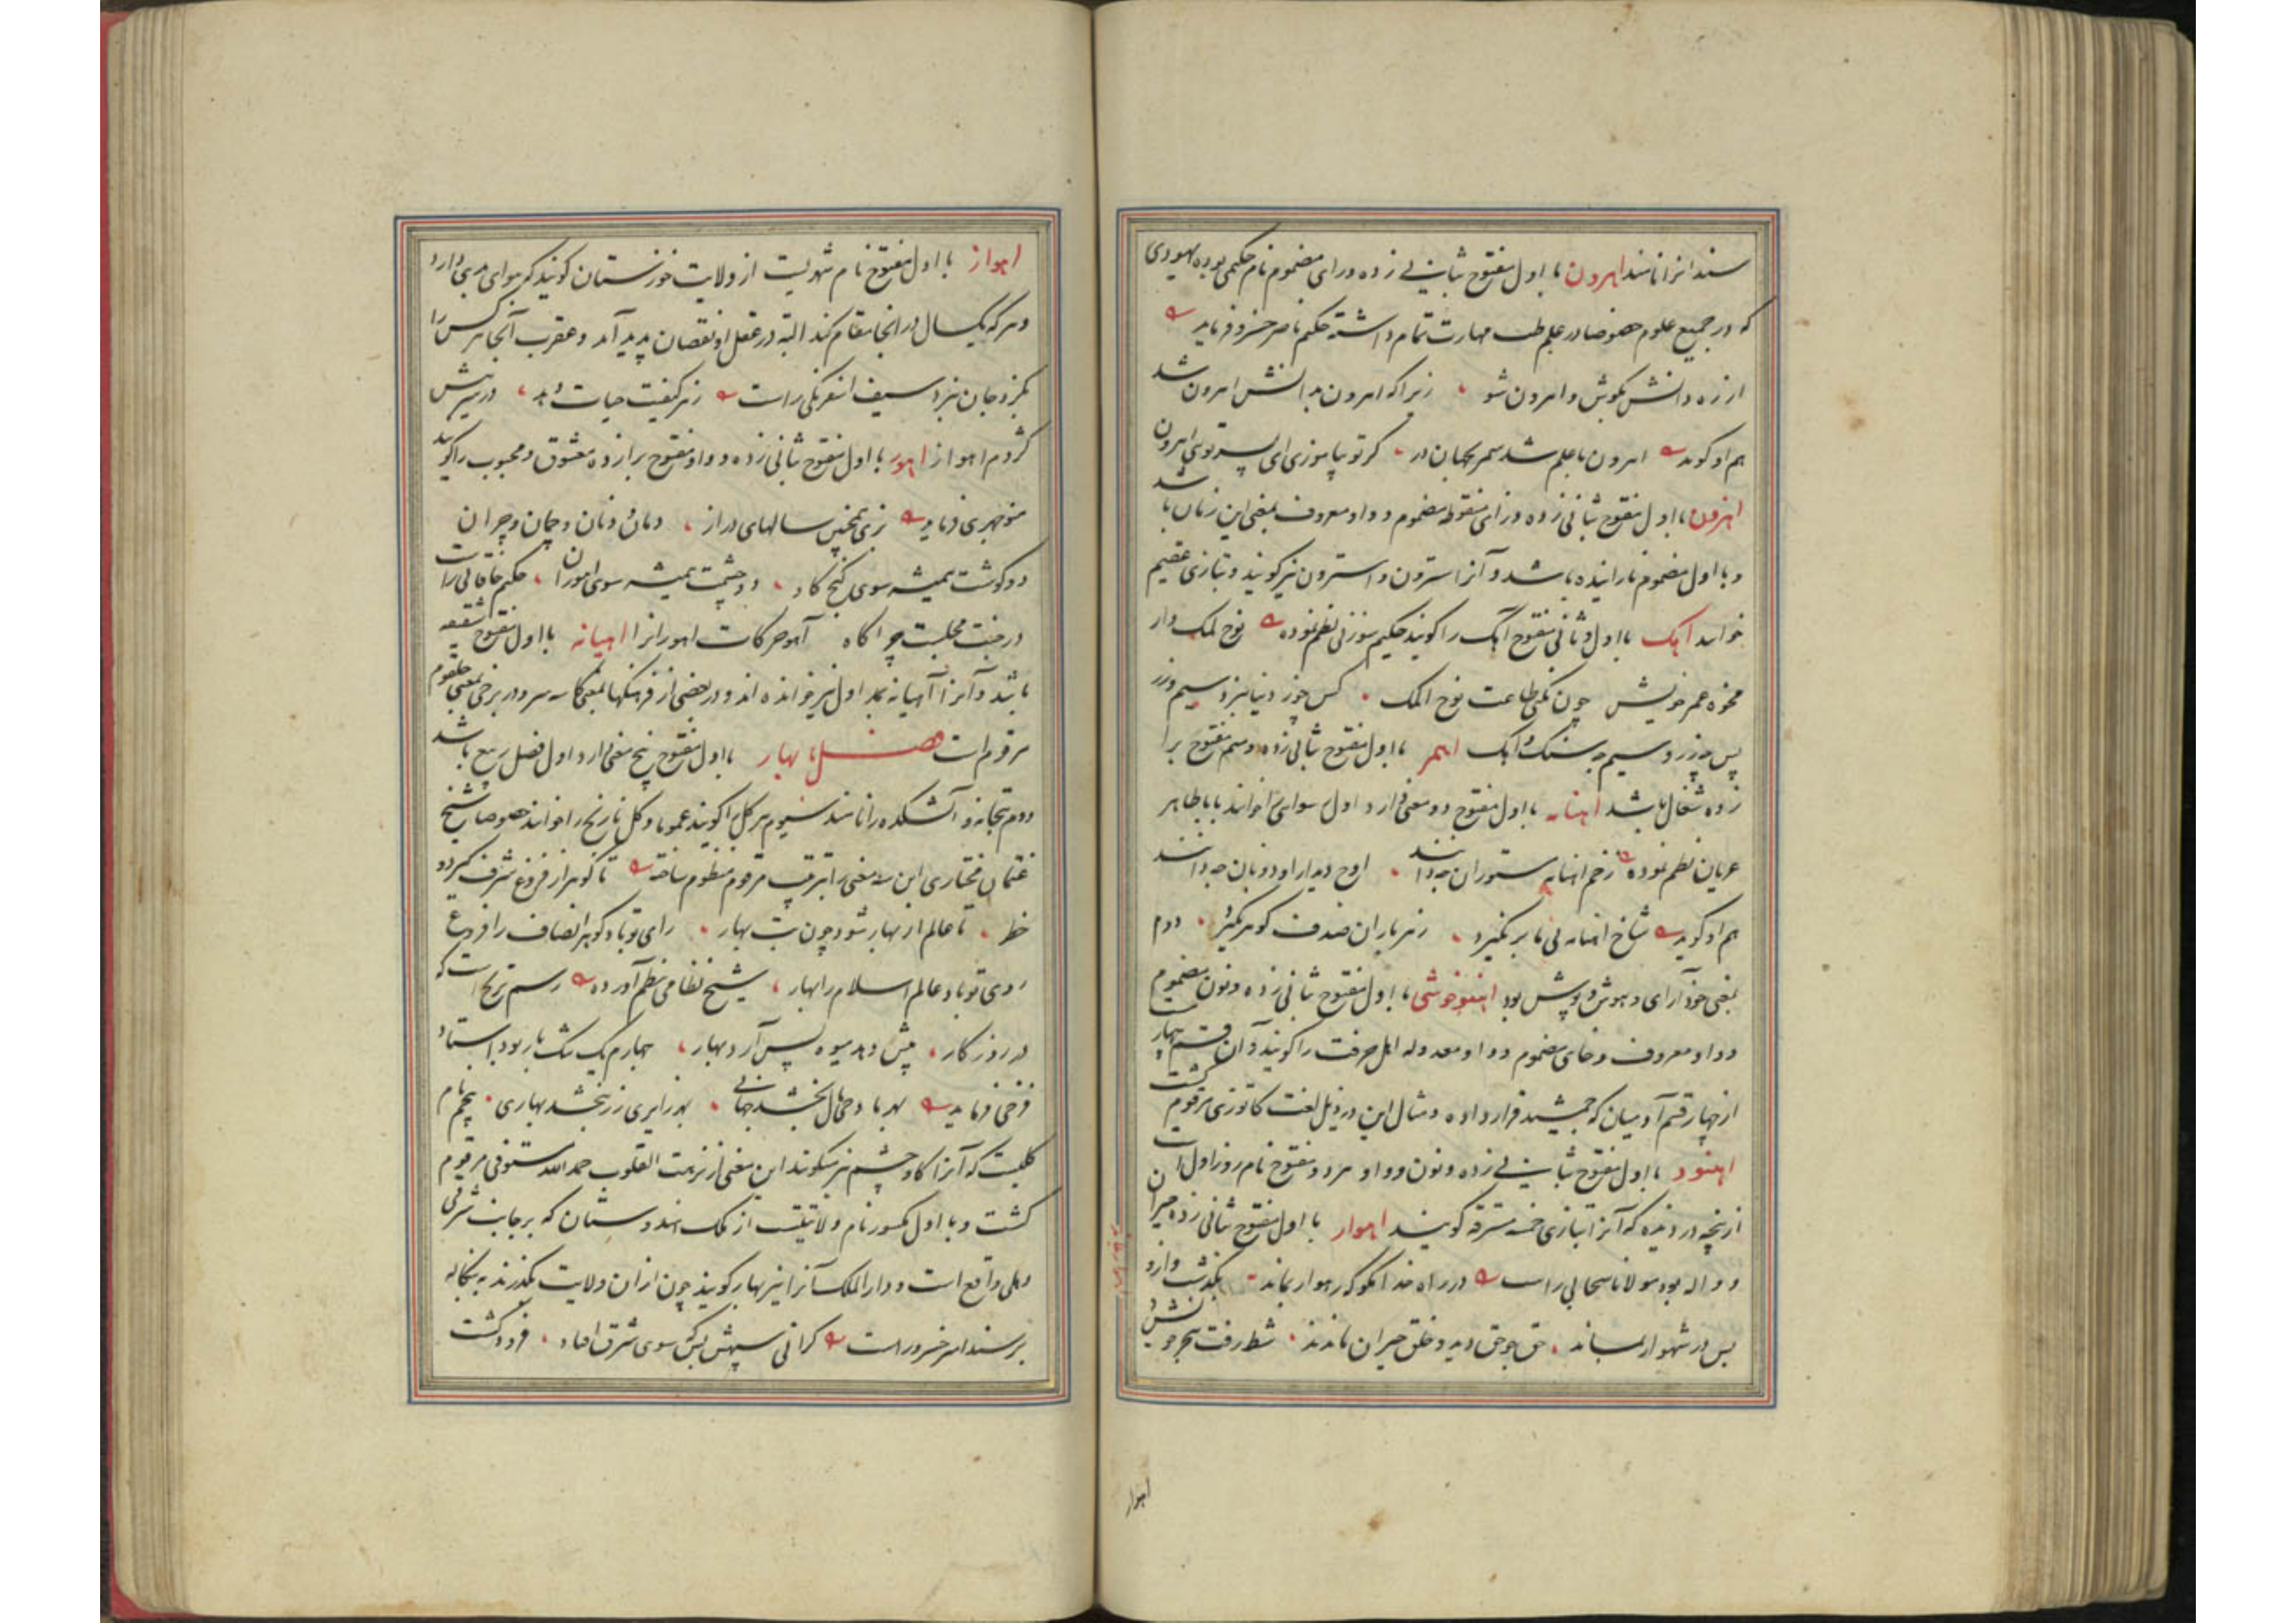 سند انرا نامند اهرون با اول مفتوح بثانی زده و رای مضموم نام حکیمی بوده یهودی
که در جمیع علوم خصوصا در علم طب مهارت تمام داشته حکیم ناصر خسرو فرماید
از ره دانش بکوش و اهرون شو زیرا که اهرون بدانش اهرون شد
هم او کوید اهرون با علم شد سمر بجهان در کر تو بیاموزی ای پسر توی اهرون
اهزون با اول مفتوح بثانی زده و زای منقوطه مضموم و واو معروف بمعنی این زمان باشد
و با اول مضموم نازاینده باشد و آنرا استرون و استرون نیز کویند و بتازی عقیم
خوانند اهک با اول و ثانی مفتوح آهک را کویند حکیم سوزنی نظم نموده نوح لمک وار
مخوه عمر خویش چون نکنی طاعت نوح الملک کس چوز دنیا نبرد سیم و زر
پس چه زر و سیم و چه سنک و اهک اهمر با اول مفتوح بثانی زده و میم مفتوح برا
زده شغال باشد اهنامه با اول مفتوح دو معنی دارد اول سوای خوانند بابا طاهر
عریان نظم نموده زخم اهنامه ستوران چه دانند اوج دیدار او دونان چه دانند
هم او کوید شاخ اهنامه نی ما بر نکیرد زهر باران صدف کوهر نکیرد دوم
بمعنی خودآرای و هوش و پوش بود اهنوخوشی با اول مفتوح بثانی زده و نون مضموم
و واو معروف و خای مضموم و واو معدوله اهل حرفت را کویند و آن قسم چهارم است
از چهار قسم آدمیان که جمشید قرار داده و مثال این در ذیل لغت کاتوزی مرقوم کشت
اهنود با اول مفتوح بثانی زده و نون و واو مردو مفتوح نام روز اول است
از پنجه دزدیده که آنرا بتازی خمسه مسترقه کویند اهوار با اول مفتوح بثانی زده حیران
و واله بود مولانا سحابی راست در راه خدا مکو که رهوار نماند بکذشت وارد
بس در شهوار نماند حق جو حق دید و خلق حیران ماندند شط رفت ببحر و جوشش
اهواز
اهواز با اول مفتوح نام شهریست از ولایت خوزستان کویند که هوای بدی دارد
و هر که یکسال در انجا مقام کند البته در عقل او نقصان پدید آید و عقرب آنجا هر کس را
بکزد جان نبرد سیف اسفرنکی راست زهر کیفیت حیات دهد در سر نیش
کژدم اهواز اهور با اول مفتوح بثانی زده و واو مفتوح برا زده معشوق و محبوب را کویند
منوچهری فرماید بزی همچنین سالهای دراز دمان و دنان و چمان و چران
دو کوشت همیشه سوی کنج کاو دو چشمت همیشه سوی اهوران حکیم خاقانی راست
در جنت مجلست چراکاه آهو حرکات اهورانرا اهیانه با اول مفتوح شقیقه
باشد و آنرا آهیانه بمد اول نیز خوانده اند و در بعضی از فرهنکها بمعنی کاسه سر و در برخی بمعنی حلقوم
مرقوم است فصل با بهار با اول مفتوح پنج معنی دارد اول فصل ربیع باشد
دوم بتخانه و آتشکده را نامند سیوم هر کل را کویند عموما و کل نارنج را خوانند خصوصا شیخ
عثمان مختاری این سه معنی را بترتیب مرقوم منظوم ساخته تا کوهر از فروغ شرف کیرد و
خطر تا عالم از بهار شود چون بت بهار رای تو باد کوهر انصاف را فروغ
روی تو باد عالم اسلام را بهار شیخ نظامی بنظم آورده رسم ترنج است که
در روزکار پیش دهد میوه پس آرد بهار چهارم یک تنک بار بود استاد
فرخی فرماید بهر بادحالی بخشد جهانی بهر زایری زر بخشد بهاری پنجم نام
کلیست که آنرا کاوچشم نیز میکویند این معنی از نزهت القلوب حمد الله مستوفی مرقوم
کشت و با اول مکسور نام ولایتیست از ملک هندوستان که بر جانب شرقی
دهلی واقع است و دار الملک آنرا نیز بهار کویند چون از ان ولایت بکذرند به بنکاله
برسند امیر خسرو راست کرانی سپهش بکن سوی شرق افتاد فرو کشت